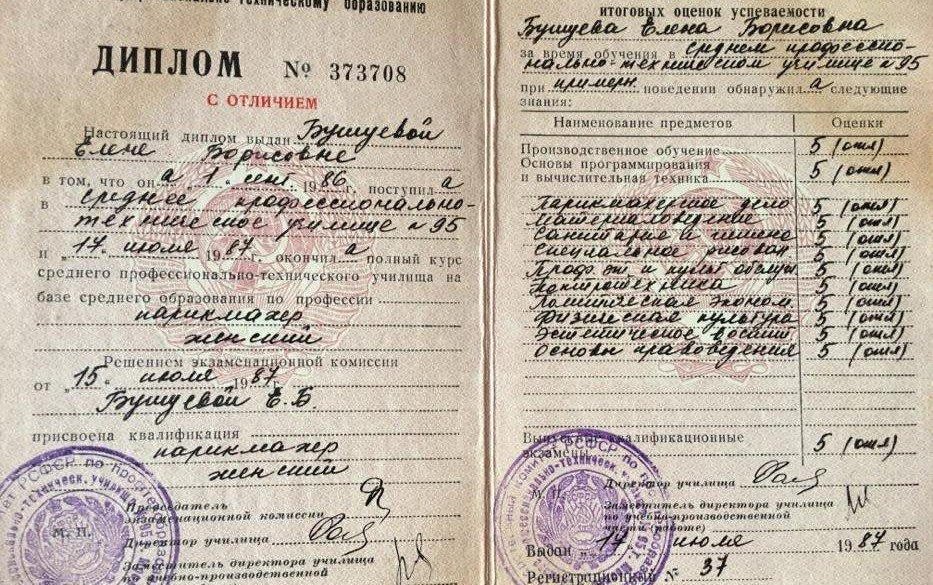 техническому образованию
ДИПЛОМ № 373708
С ОТЛИЧИЕМ
Настоящий диплом выдан Бушуевой
Елене Борисовне
в том, что он а „1" сент 1986 поступил а
в среднее профессионально-
техническое училище №95
и „17" июля 1987 окончил а полный курс
среднего профессионально-технического училища на
базе среднего образования по профессии
парикмахер
женский
Решением экзаменационной комиссии
от „15" июля 1987
Бушуевой Е.Б.
присвоена квалификация
парикмахер
женский
Председатель
экзаменационной комиссии
М. П. Директор училища
Заместитель директора училища
по учебно-производственной
итоговых оценок успеваемости
Бушуева Елена Борисовна
за время обучения в среднем профессио-
нально-техническом училище №95
при примерн. поведении обнаружил а следующие
знания:
Наименование предметов Оценки
Производственное обучение 5 (отл)
Основы программирования
и вычислительная техника 5 (отл)
Парикмахерское дело 5 (отл)
Материаловедение 5 (отл)
Санитария и гигиена 5 (отл)
Специальное рисован 5 (отл)
Проф. эт. и культ обслуж 5 (отл)
Электротехника 5 (отл)
Политическая эконом. 5 (отл)
Физическая культура 5 (отл)
Эстетическое воспит 5 (отл)
Основы правоведения 5 (отл)
Выпускные квалификационные
экзамены 5 (отл)
М. П. Директор училища
Заместитель директора училища
по учебно-производственной
части (работе)
Выдан „17" июля 1987 года
Регистрационный № 37